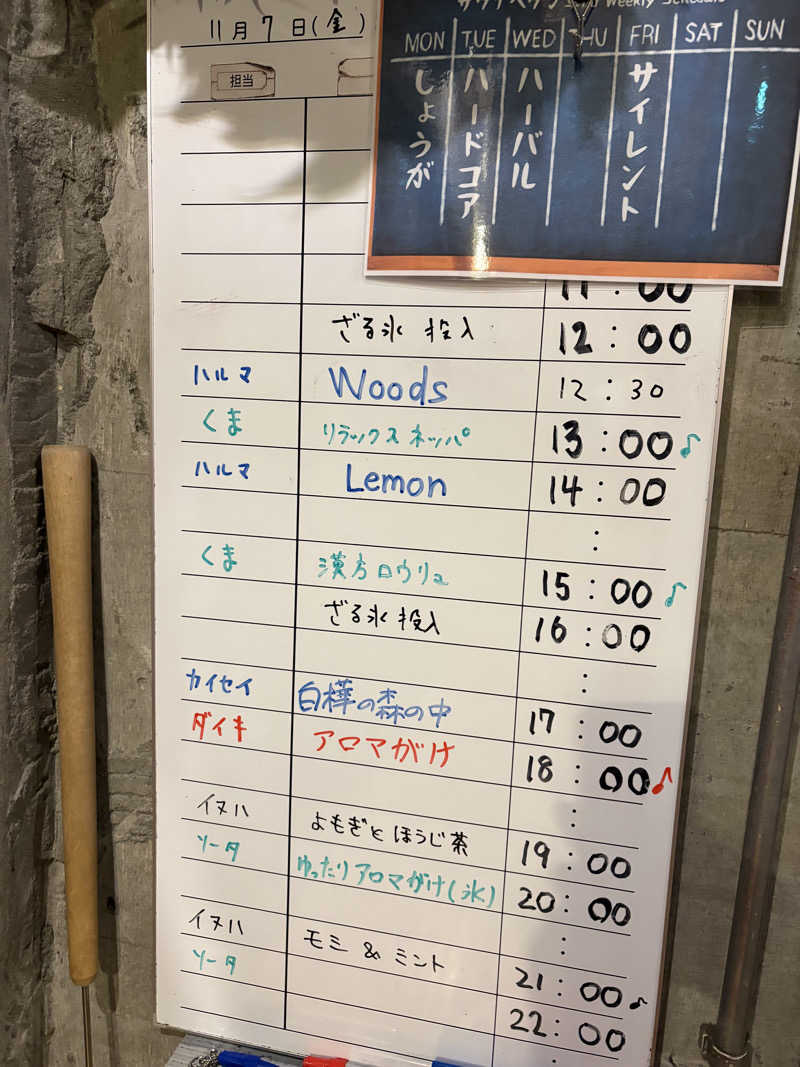 11月7日(金)
Weekly Schedule
MON TUE WED THU FRI SAT SUN
しょうが
ハードコア
ハーバル
サイレント
担当
11:00
ざる氷 投入 12:00
ハルマ Woods 12:30
くま リラックスネッパ 13:00♪
ハルマ Lemon 14:00
:
くま 漢方ロウリュ 15:00♪
ざる氷投入 16:00
:
カイセイ 白樺の森の中 17:00
ダイキ アロマがけ 18:00♪
:
イヌハ よもぎとほうじ茶 19:00
ソータ ゆったりアロマがけ(氷) 20:00
:
イヌハ モミ & ミント 21:00♪
ソータ 22:00
: